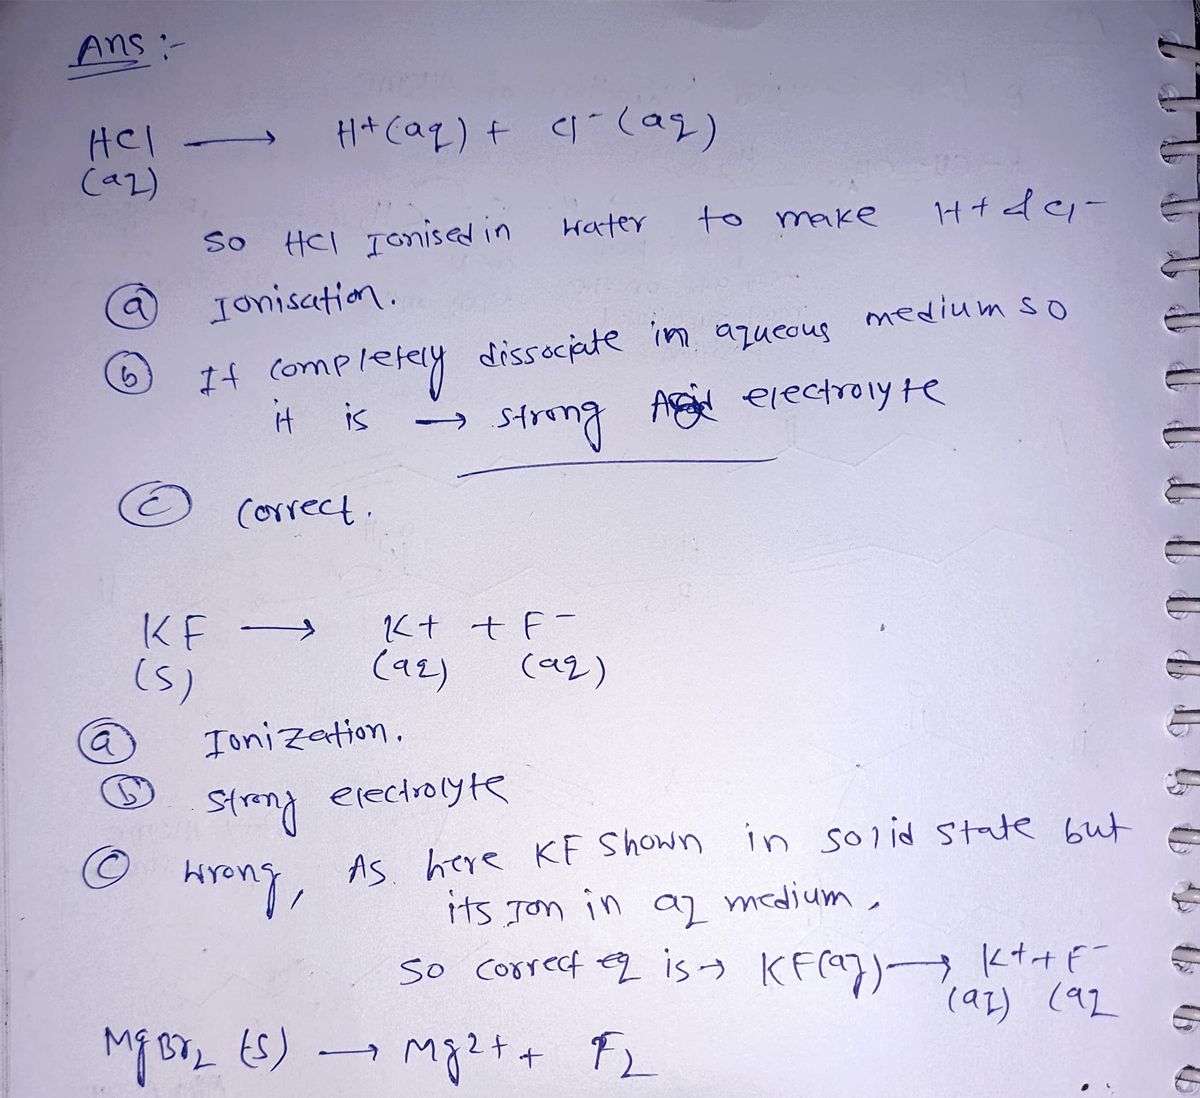 Ans :-
HCl ⟶ H+(aq) + Cl-(aq)
(aq)
So HCl Ionised in water to make H+ & Cl-
(a) Ionisation.
(b) It completely dissociate in aqueous medium so
it is → strong electrolyte
(c) correct.
KF ⟶ K+ + F-
(s) (aq) (aq)
(a) Ionization.
(b) strong electrolyte
(c) wrong, As here KF shown in solid state but
its Ion in aq medium,
so correct eq is → KF(aq) ⟶ K+ + F-
(aq) (aq
MgBr2 (s) ⟶ Mg2+ + F2